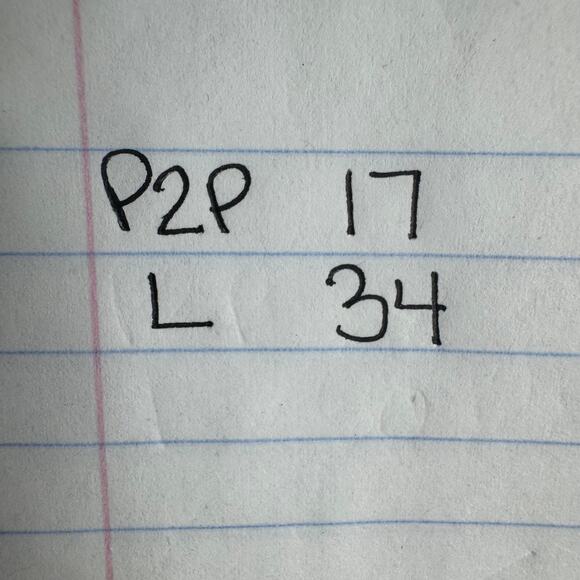 P2P 17
L 34